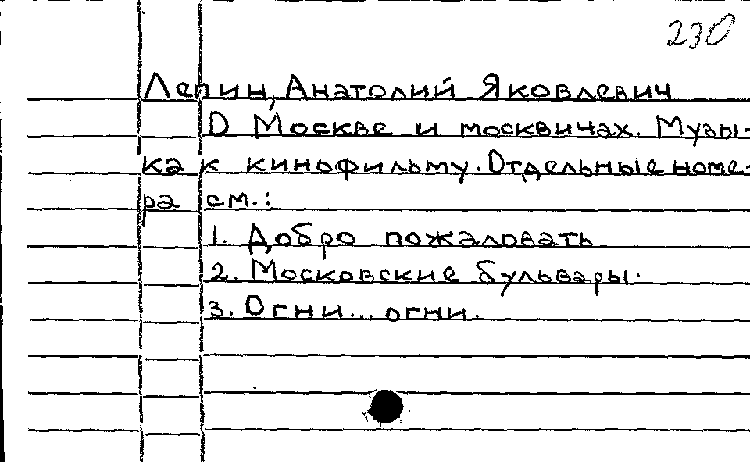 230
Лепин, Анатолий Яковлевич
О Москве и москвичах. Музы-
ка к кинофильму. Отдельные номе-
ра см.:
1. Добро пожаловать
2. Московские бульвары.
3. Огни... огни.